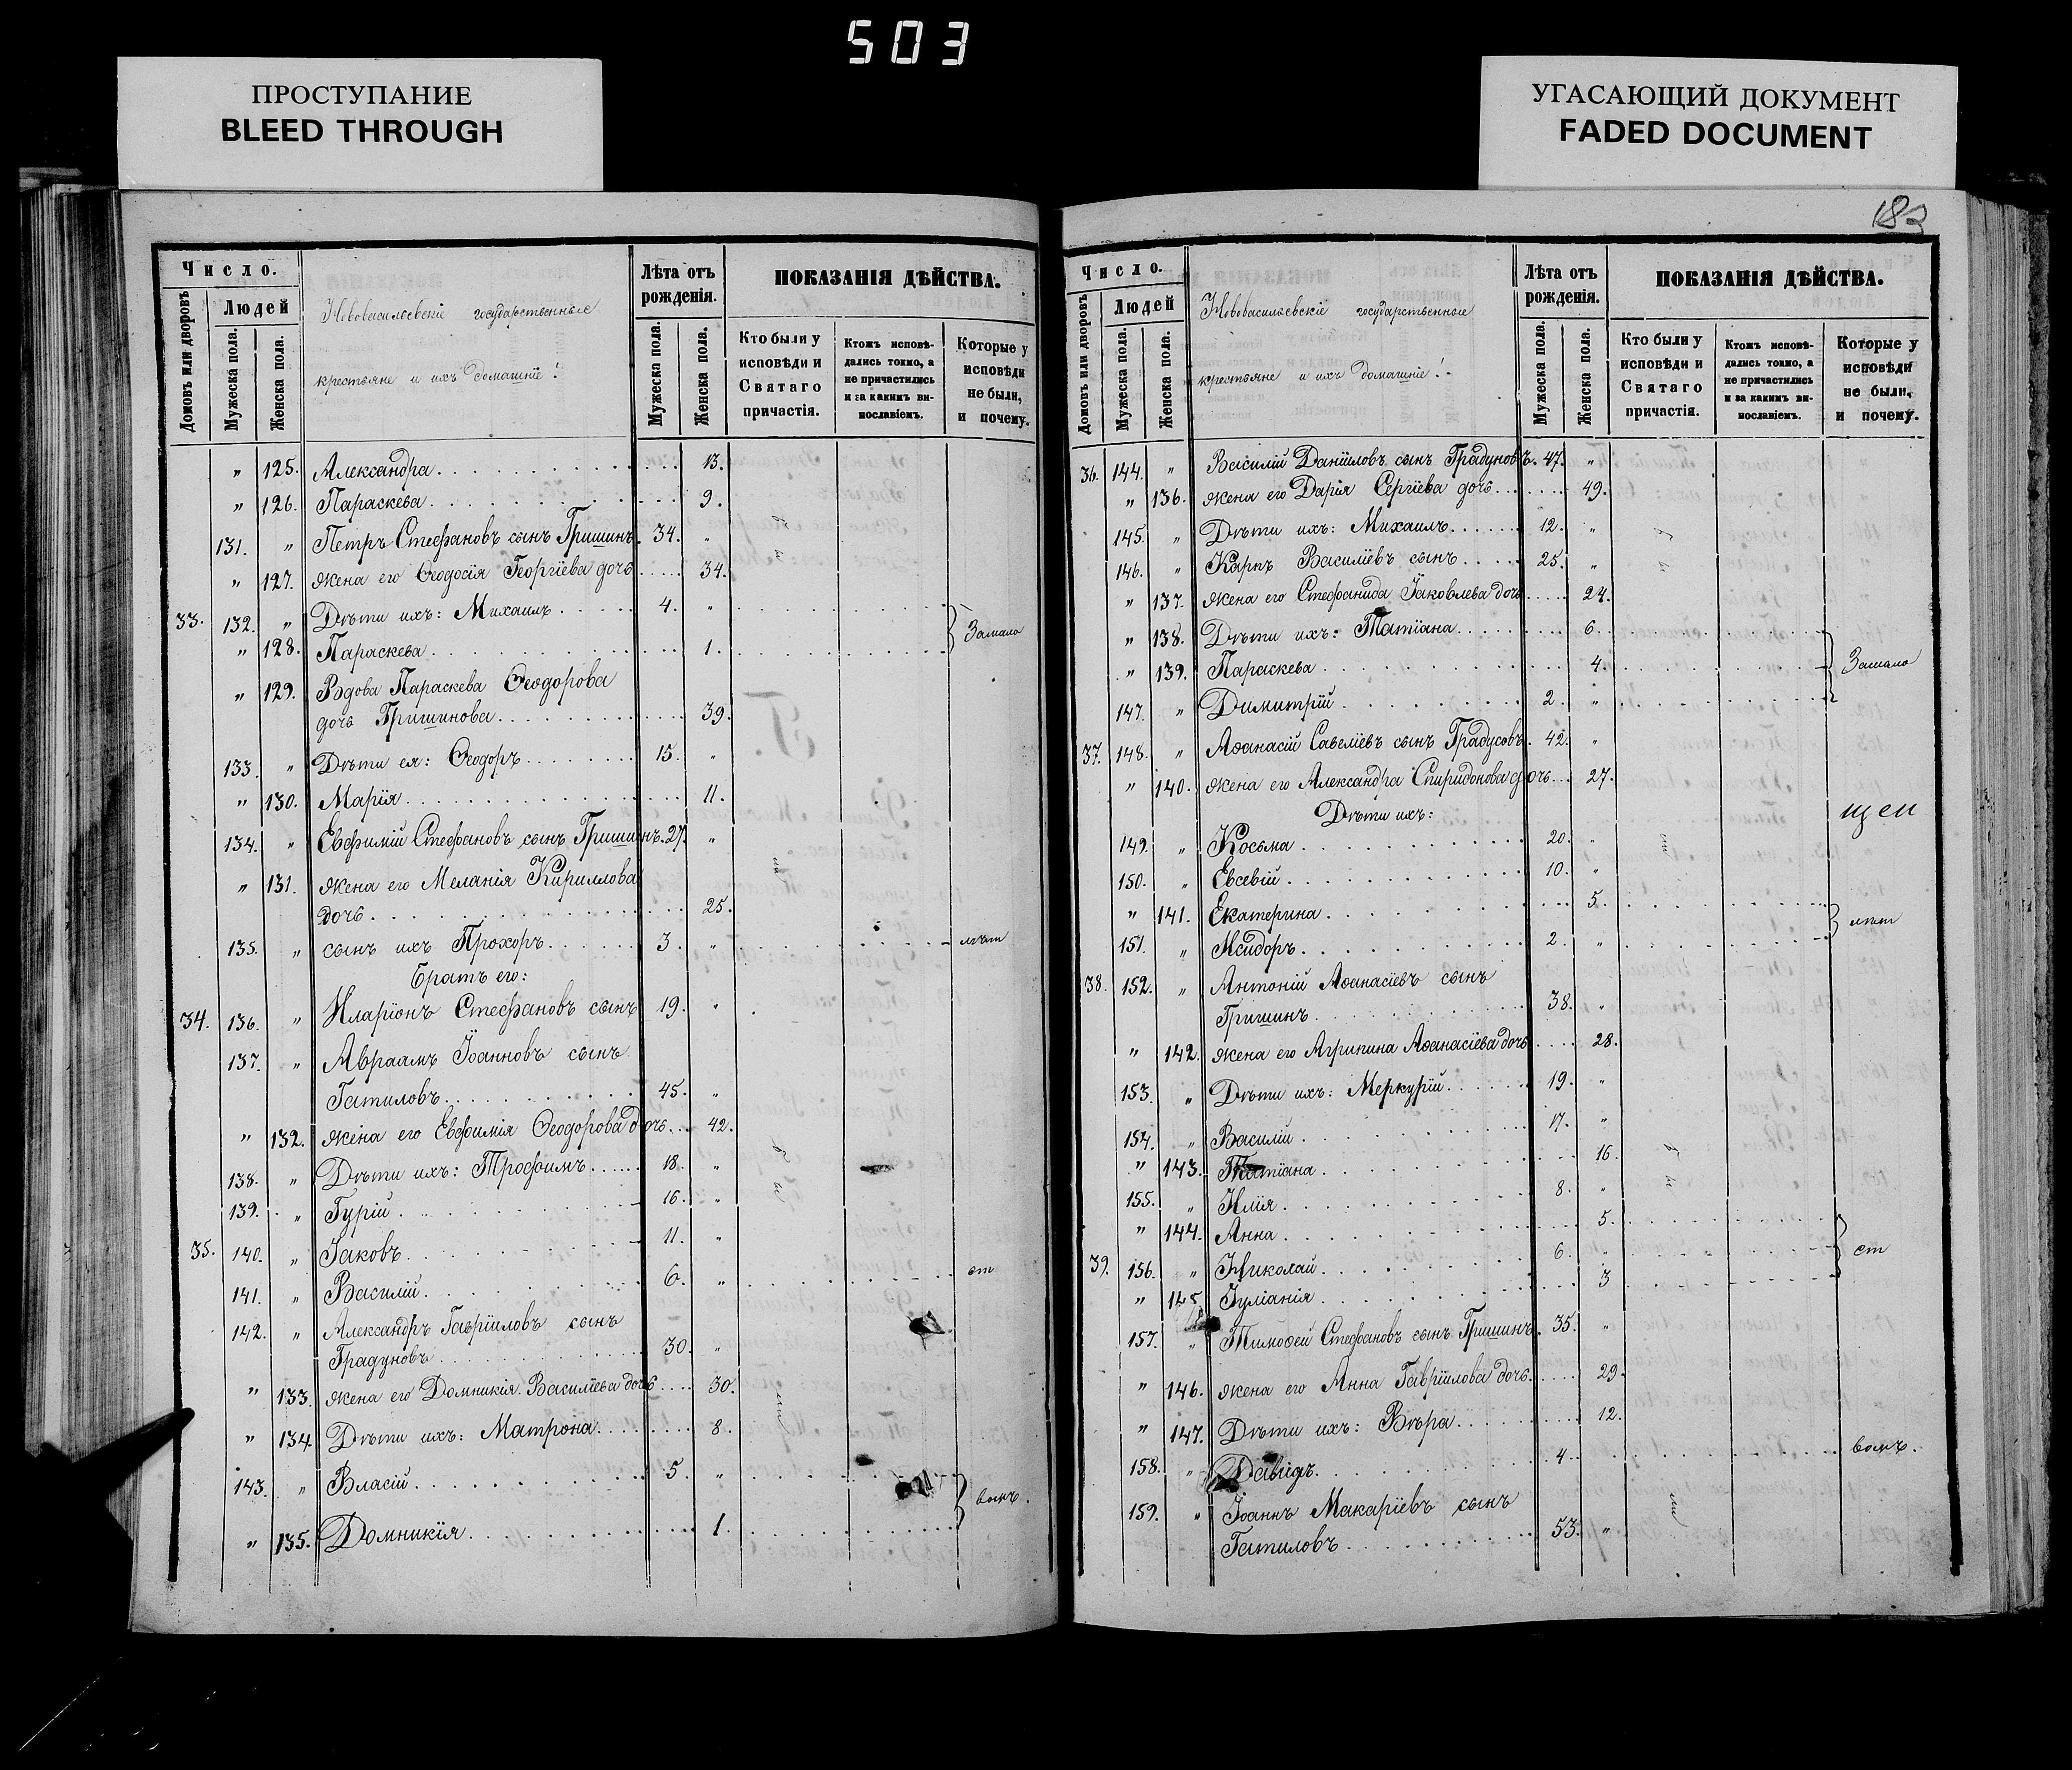 503
ПРОСТУПАНИЕ
BLEED THROUGH
УГАСАЮЩИЙ ДОКУМЕНТ
FADED DOCUMENT
Число.
Домовъ или дворовъ
Людей
Мужеска пола.
Женска пола.
Нововасильевскіе государственные
крестьяне и ихъ домашніе:
Лѣта отъ рожденія.
Мужеска пола.
Женска пола.
ПОКАЗАНІЯ ДѢЙСТВА.
Кто были у исповѣди и Святаго причастія.
Ктожъ исповѣдались токмо, а не причастились и за какимъ винославіемъ.
Которые у исповѣди не были, и почему.
" 125. Александра 13.
" 126. Параскева 9.
131. " Петръ Стефановъ сынъ Гришинъ. 34. "
" 127. жена его Ѳеодосія Георгіева дочь 34.
33. 132. " Дѣти ихъ: Михаилъ 4. "
" 128. Параскева 1. Замало
" 129. Вдова Параскева Ѳеодорова
дочь Гришинова 39.
133. " Дѣти ея: Ѳеодоръ 15. "
" 130. Марія 11.
134. " Евфимій Стефановъ сынъ Гришинъ. 27. "
" 131. жена его Меланія Кириллова
дочь 25.
135. " сынъ ихъ Прохоръ 3. " лѣт
Братъ его:
34. 136. " Иларіонъ Стефановъ сынъ 19. "
137. " Авраамъ Іоанновъ сынъ
Гатиловъ 45. "
" 132. жена его Евфимія Ѳеодорова дочь 42.
138. " Дѣти ихъ: Трофимъ 18. "
139. " Гурій 16. "
35. 140. " Іаковъ 11. "
141. " Василій 6. " ст
142. " Александръ Гавріиловъ сынъ
Градуновъ 30. "
" 133. жена его Домникія Василіева дочь 30.
" 134. Дѣти ихъ: Матрона 8.
143. " Власій 5. "
" 135. Домникія 1. вомъ.
183
Число.
Домовъ или дворовъ
Людей
Мужеска пола.
Женска пола.
Нововасильевскіе государственные
крестьяне и ихъ домашніе:
Лѣта отъ рожденія.
Мужеска пола.
Женска пола.
ПОКАЗАНІЯ ДѢЙСТВА.
Кто были у исповѣди и Святаго причастія.
Ктожъ исповѣдались токмо, а не причастились и за какимъ винославіемъ.
Которые у исповѣди не были, и почему.
36. 144. " Василій Даніиловъ сынъ Градуновъ. 47. "
" 136. жена его Дарія Сергіева дочь 49.
145. " Дѣти ихъ: Михаилъ 12. "
146. " Карпъ Василіевъ сынъ 25. "
" 137. жена его Стефанида Іаковлева дочь 24.
" 138. Дѣти ихъ: Татіана 6.
" 139. Параскева 4. Замало
147. " Димитрій 2. "
37. 148. " Аѳанасій Савеліевъ сынъ Градусовъ. 42. "
" 140. жена его Александра Спиридонова дочь 27.
Дѣти ихъ:
149. " Косьма 20. "
150. " Евсевій 10. "
" 141. Екатерина 5. лѣт
151. " Исидоръ 2. "
38. 152. " Антоній Аѳанасіевъ сынъ
Гришинъ 38. "
" 142. жена его Агрипина Аѳанасіева дочь 28.
153. " Дѣти ихъ: Меркурій 19. "
154. " Василій 17. "
" 143. Татіана 16.
155. " Илія 8. "
" 144. Анна 5.
39. 156. " Николай 6. " ст
" 145. Іуліанія 3
157. " Тимоѳей Стефановъ сынъ Гришинъ. 35. "
" 146. жена его Анна Гавріилова дочь. 29.
" 147. Дѣти ихъ: Вѣра 12.
158. " Давидъ 4. вомъ.
159. " Іоаннъ Макаріевъ сынъ
Гатиловъ 53. "